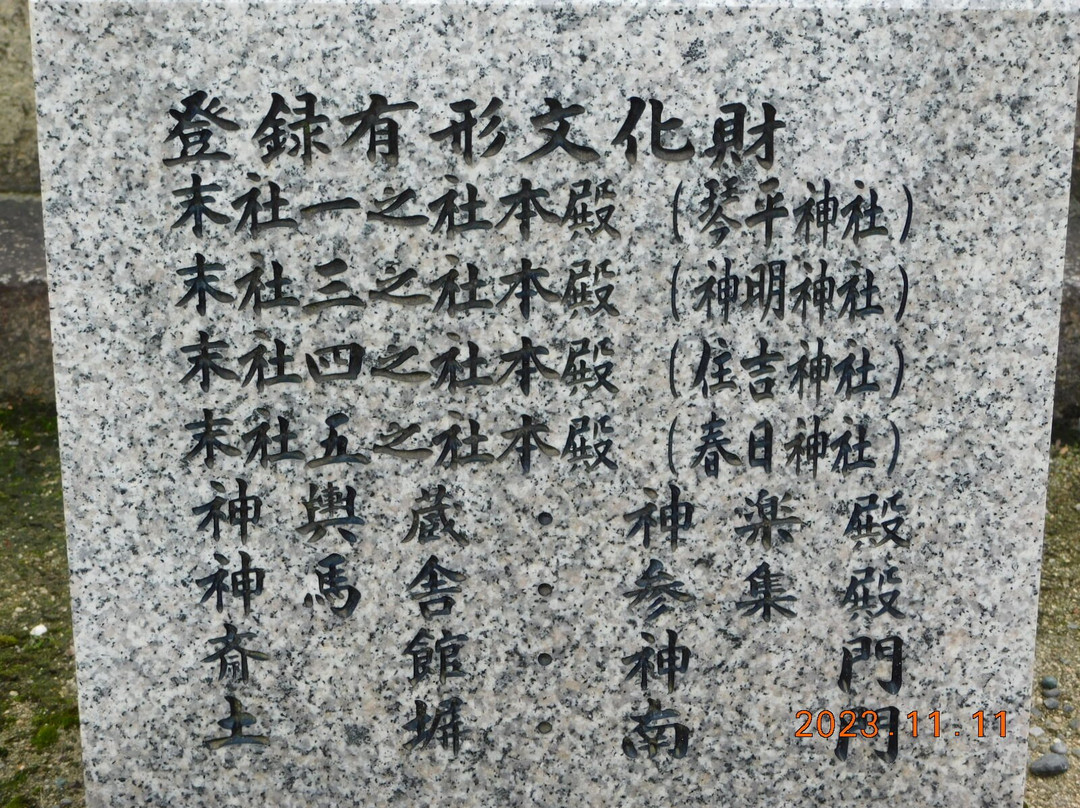 登録有形文化財
末社一之社本殿 (琴平神社)
末社三之社本殿 (神明神社)
末社四之社本殿 (住吉神社)
末社五之社本殿 (春日神社)
神輿蔵・神楽殿
神馬舎・参集殿
斎館・神門
土塀・南門
2023.11.11